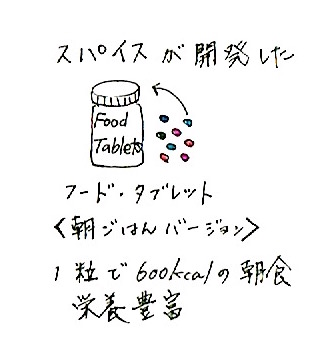 スパイスが開発した
Food
Tablets
フード・タブレット
〈朝ごはんバージョン〉
1粒で600kcalの朝食
栄養豊富